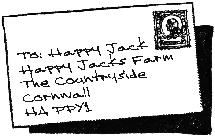 To: Happy Jack
Happy Jacks Farm
The Countryside
Cornwall
HA PPY1